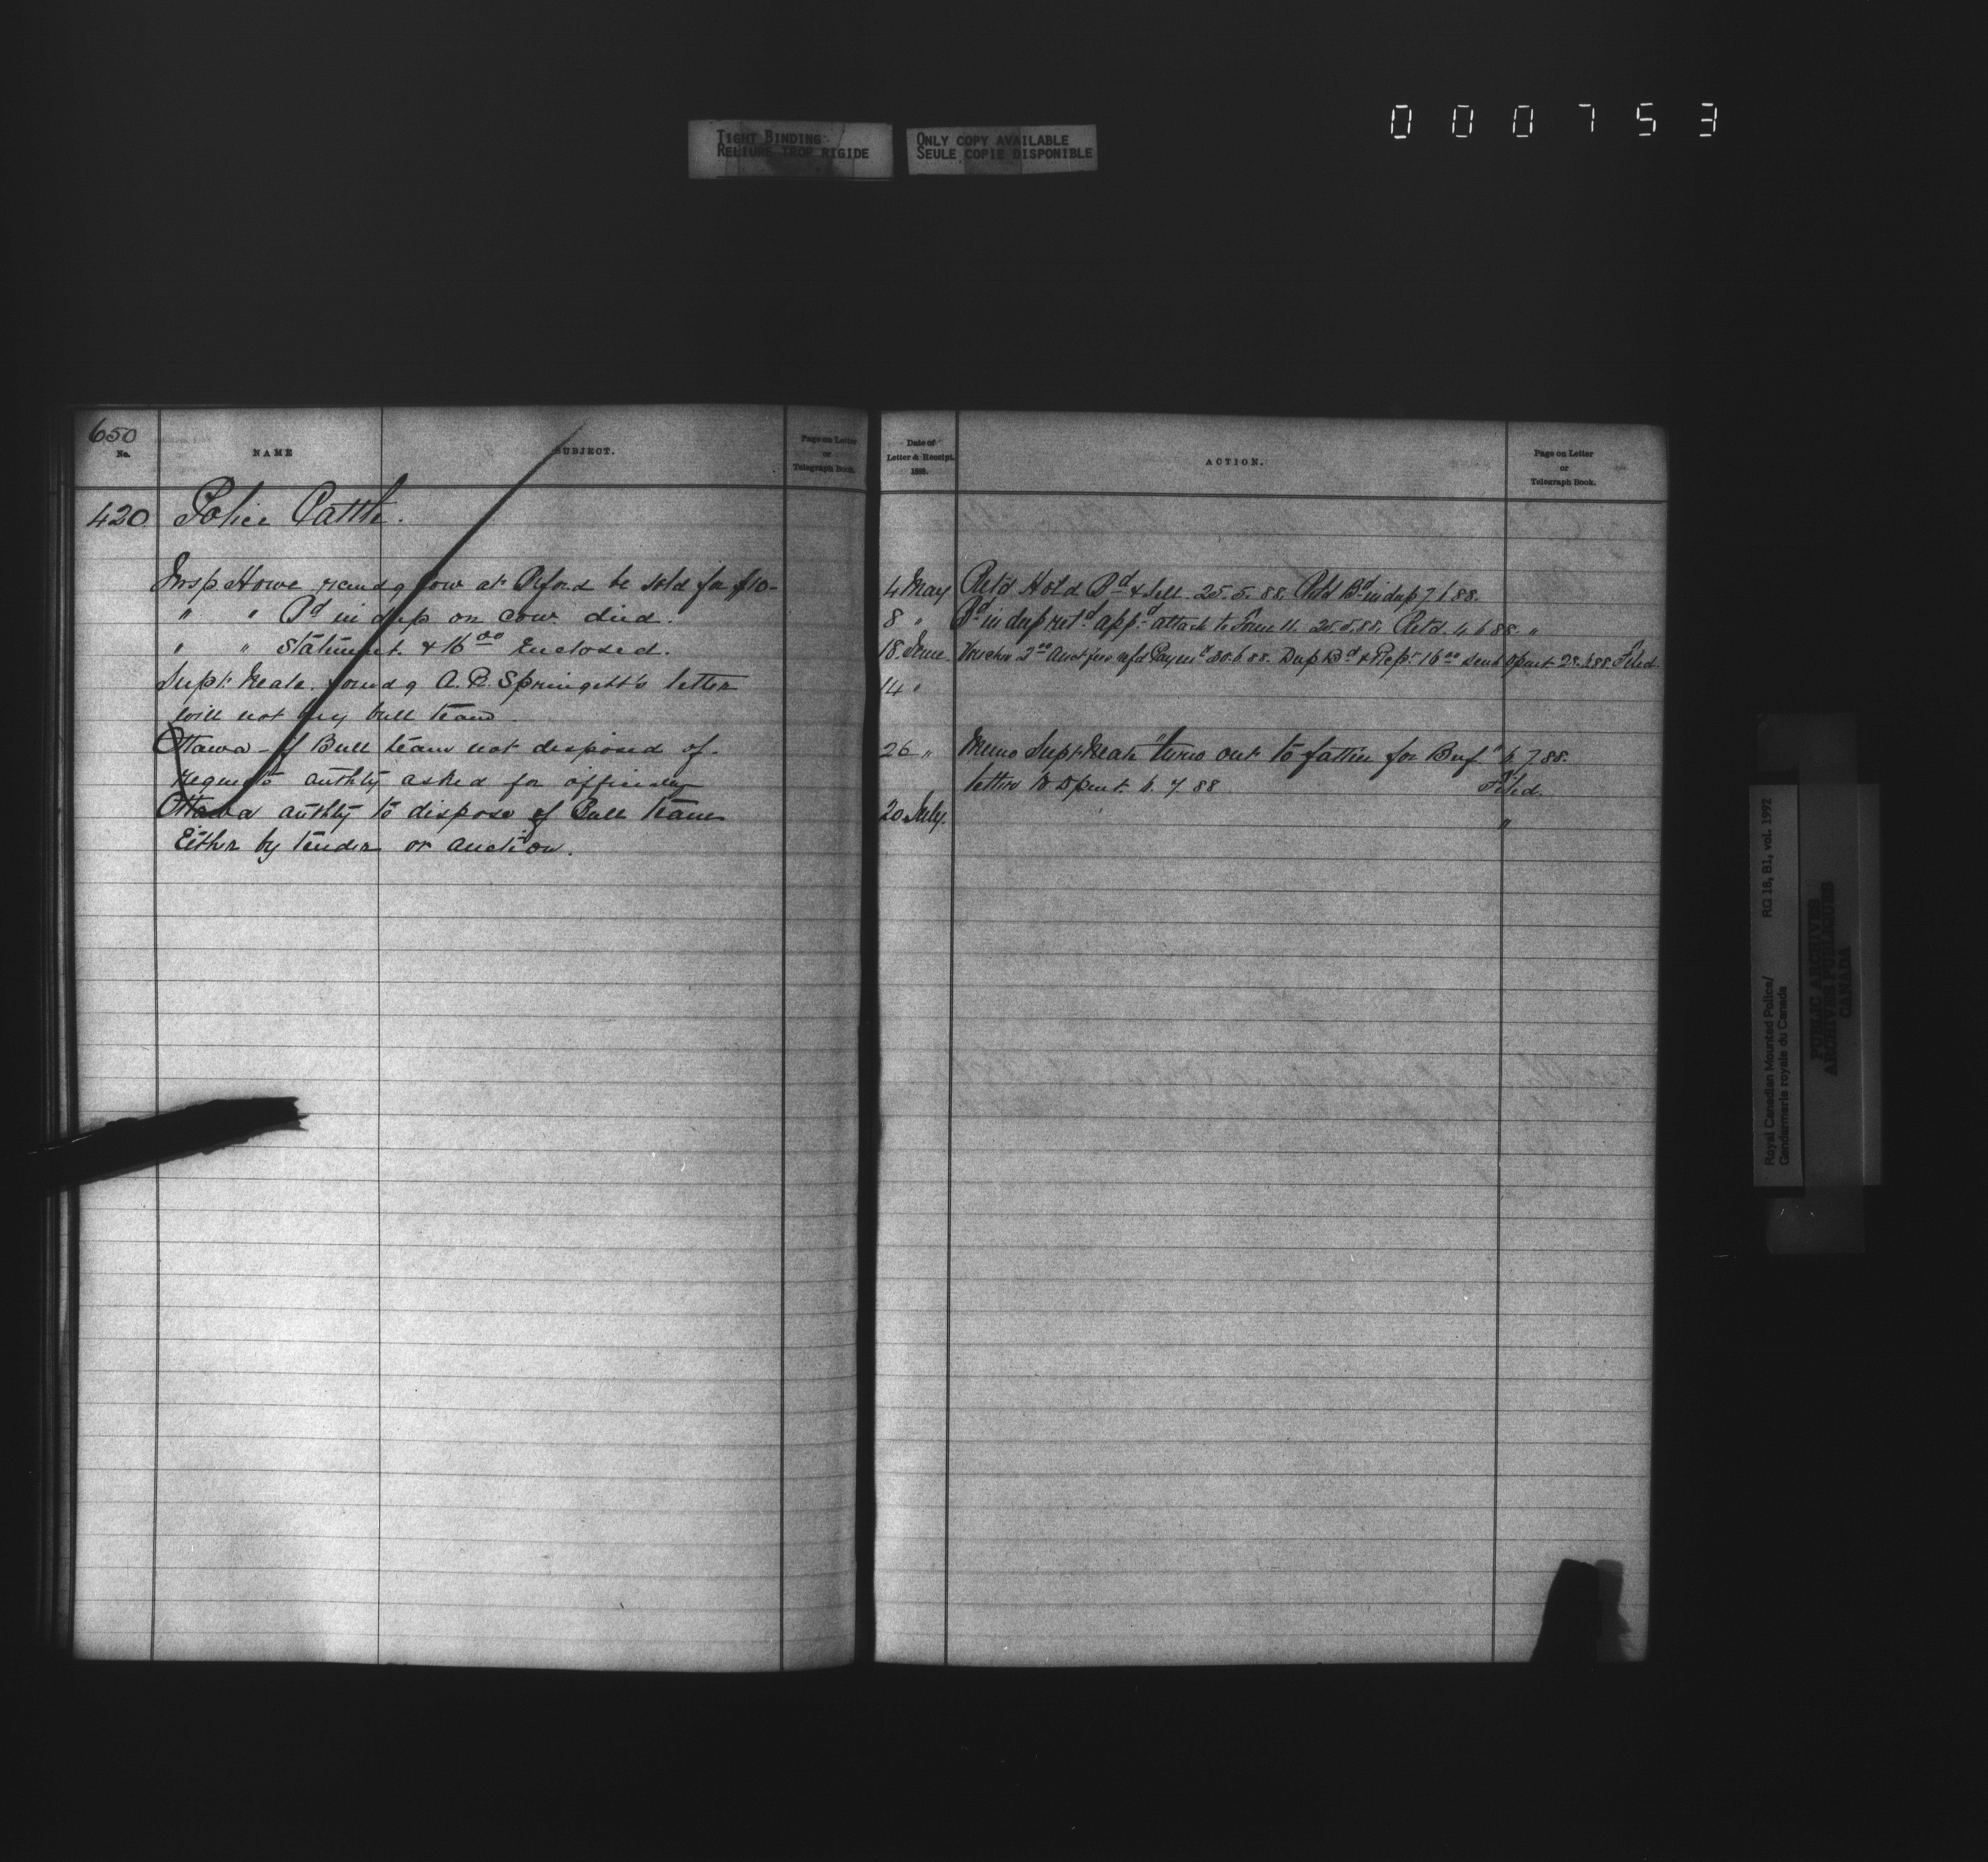 000753
TIGHT BINDING
RELIURE TROP RIGIDE
ONLY COPY AVAILABLE
SEULE COPIE DISPONIBLE
650
No.
NAME
SUBJECT.
Page on Letter
or
Telegraph Book.
420 Police Cattle.
Insp Howe recmdg Cow at Pe ford be sold for $10-
" " Bd in dup on cow died.
" " Statement & 16 00 Enclosed.
Supt Neale forwdg A. R. Springett's letter
will not buy bull team.
Ottawa - if Bull team not disposed of.
requests authty asked for officially
Ottawa authty to dispose of Bull team
Either by tender or auction.
Date of
Letter & Receipt.
1888.
ACTION.
Page on Letter
or
Telegraph Book.
4 May Ret'd Hold Bd & Sell 25.5.88. Bd in dup 7 6 88.
8 " Bd in dup retd appd attach to Form 11. 25.5.88. Retd. 4 6 88. "
18 June Voucher 2 00 Auct fees 30.6.88. Dup Bd & Recpt 16 00 sent Dpmt 28.6.88 Filed
14 "
26 " Memo Supt Neale "turn out to fatten for Beef" 6.7.88.
letter to Dpmt. 6. 7 88 Filed.
20 July. "
Royal Canadian Mounted Police/
Gendarmerie royale du Canada
RG 18, B1, vol. 1992
PUBLIC ARCHIVES
ARCHIVES PUBLIQUES
CANADA